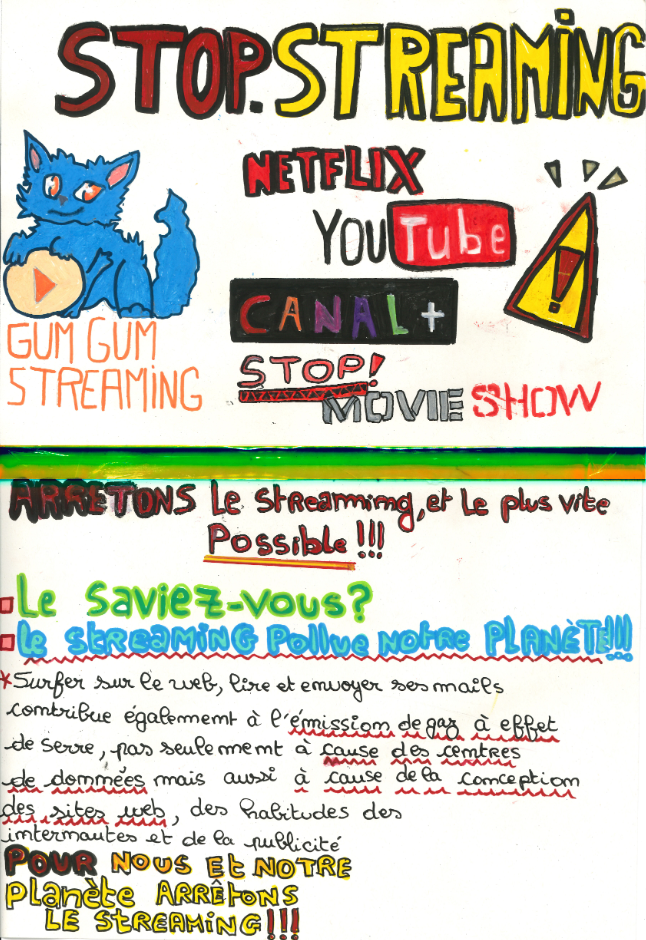 STOP.STREAMING
NETFLIX
YOUTube
CANAL+
GUM GUM
STREAMING
STOP!
MOVIE SHOW
ARRETONS Le Streamming, et Le plus vite
Possible!!!
Le Saviez-vous?
le STREAMING Pollue Notre PLANÈTE!!!
*Surfer sur le web, lire et envoyer ses mails
contribue également à l'émission de gaz à effet
de serre, pas seulement à cause des centres
de données mais aussi à cause de la conception
des sites web, des habitudes des
internautes et de la publicité
POUR NOUS Et NOTRE
planète ARRÊtONS
LE StREAMiNG!!!